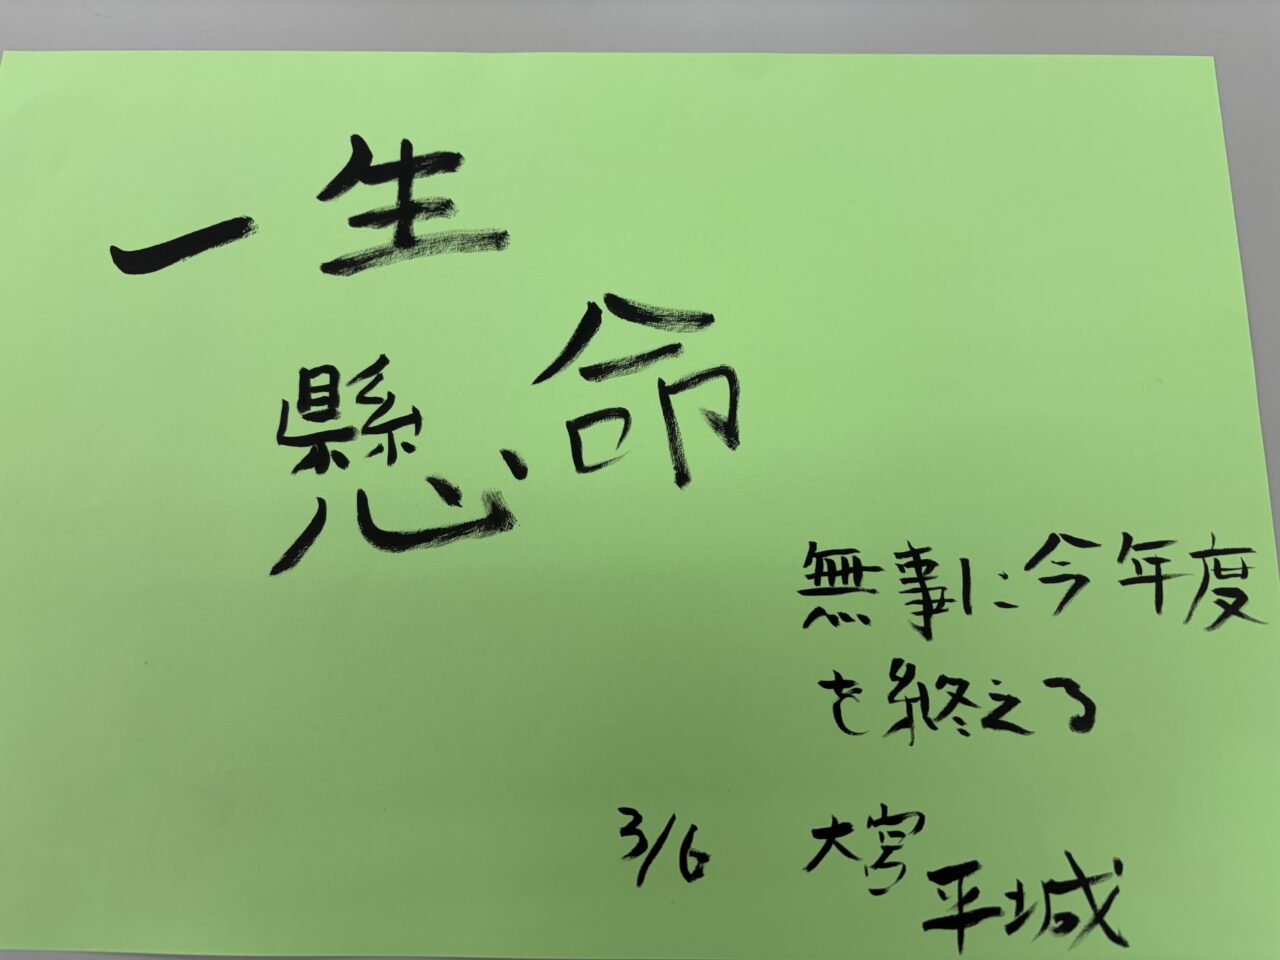 一生
懸命
無事に今年度
を終える
3/6 大宮
平城